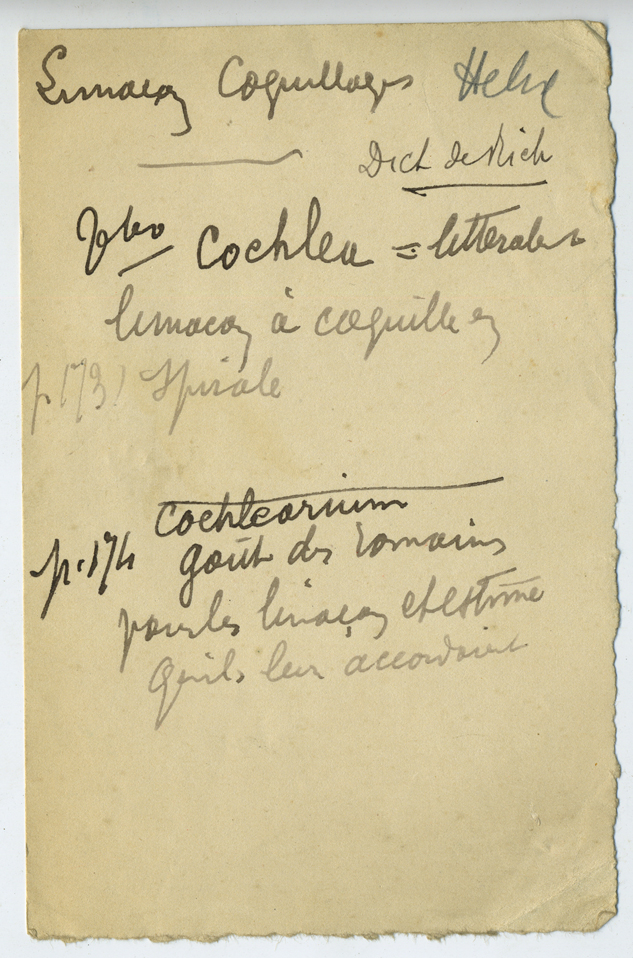 Limaçon Coquillages
Dict de Rich
Cochlea = litteralemt
limaçon à coquille en
p 173) spirale
Cochlearium
p. 174 goût des romains
pour les limaçons et estime
qu'ils leur accordaient